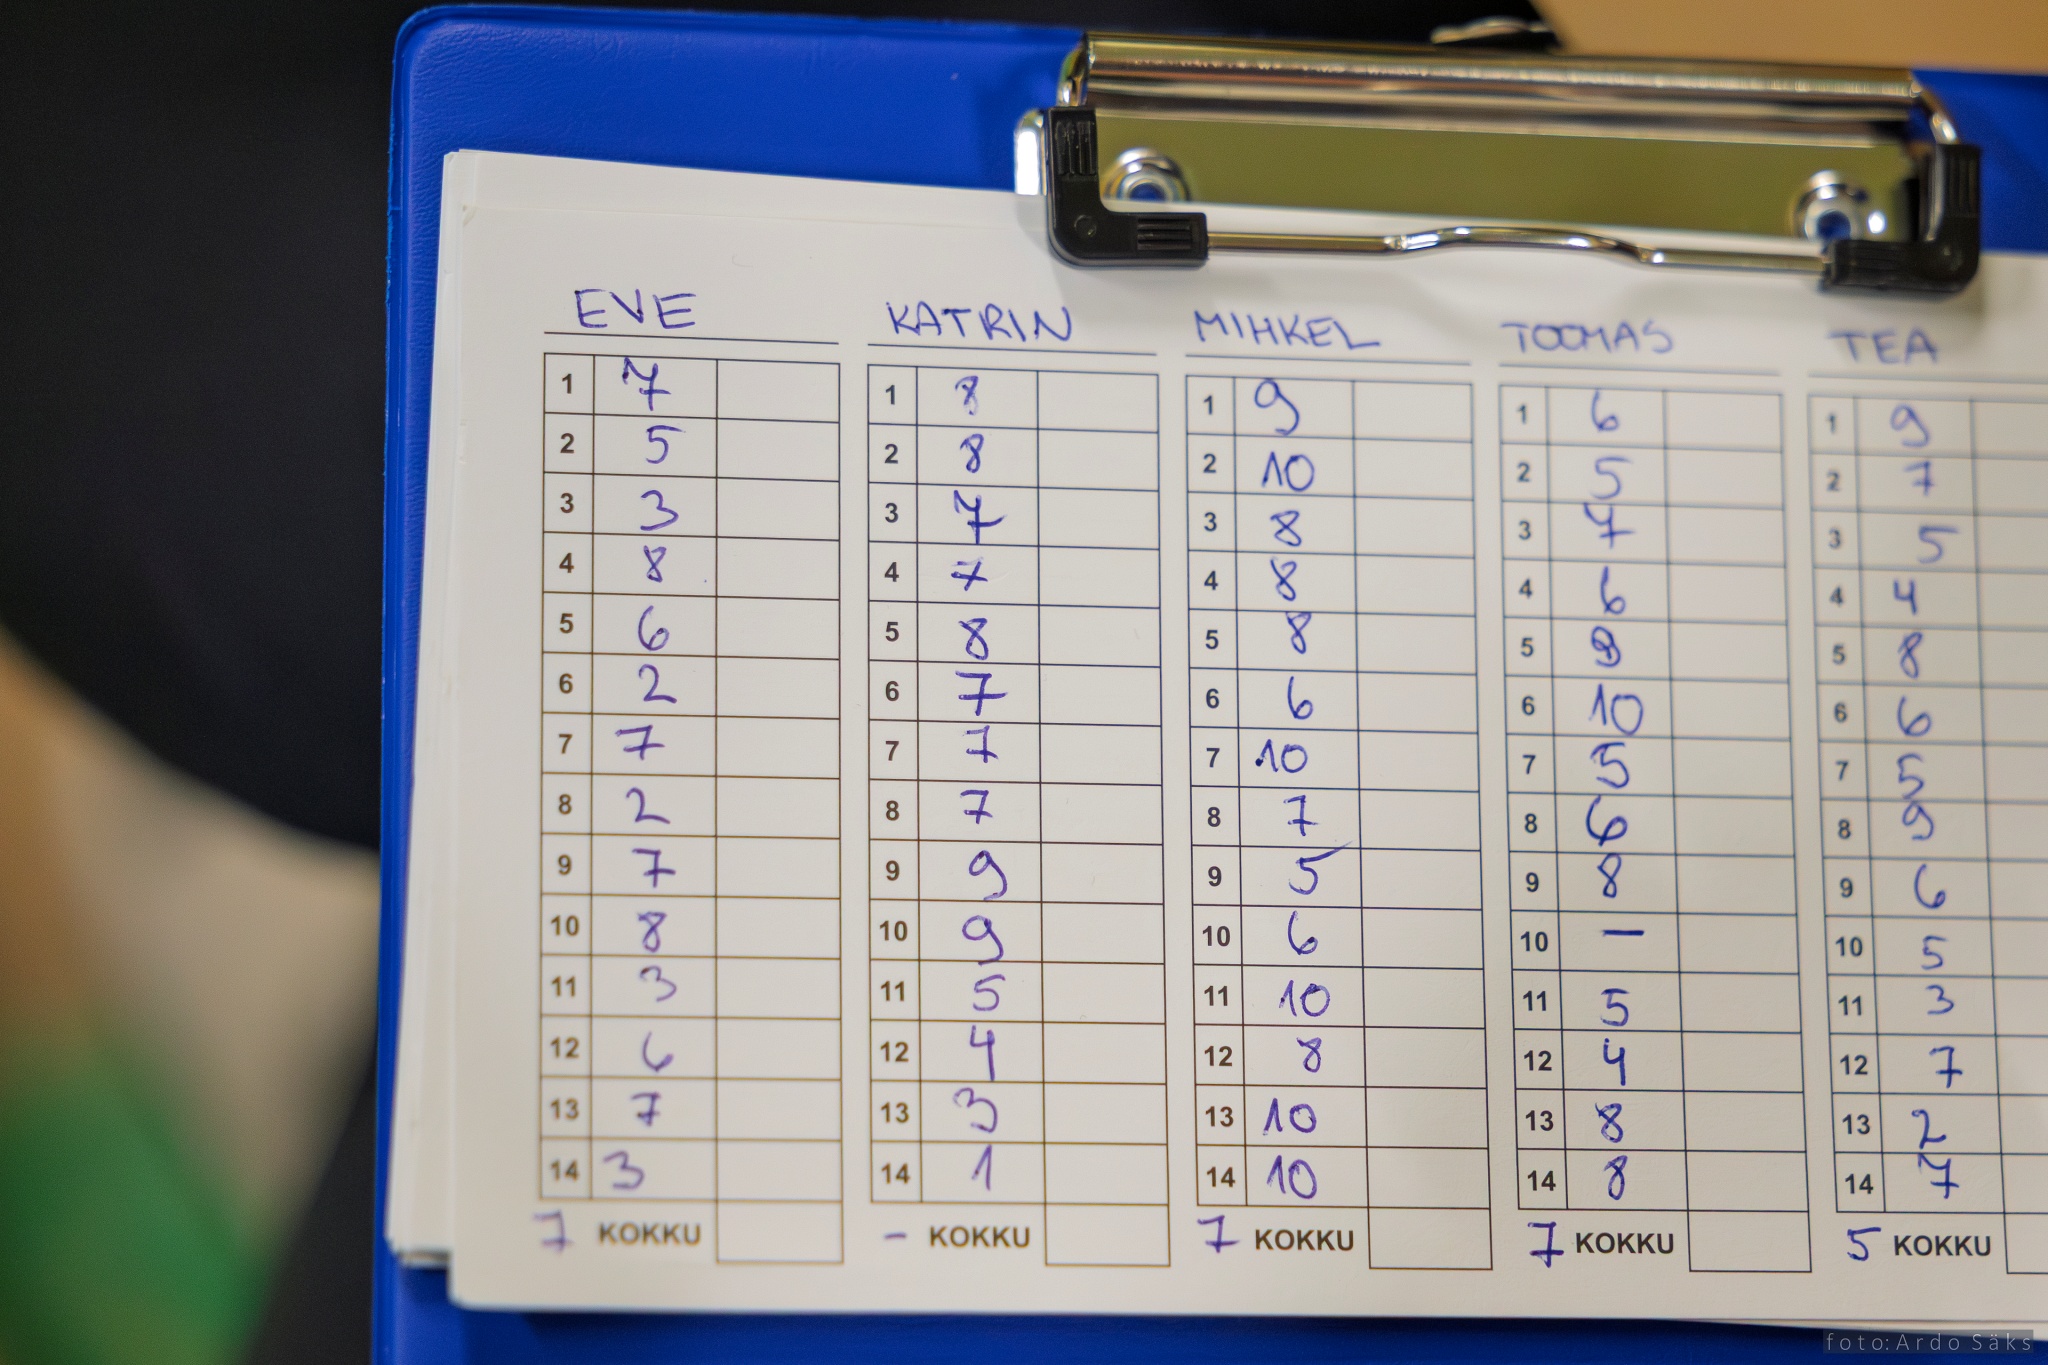 EVE KATRIN MIHKEL TOOMAS TEA
1 7 1 8 1 9 1 6 1 9
2 5 2 8 2 10 2 5 2 7
3 3 3 7 3 8 3 7 3 5
4 8 4 7 4 8 4 6 4 4
5 6 5 8 5 8 5 9 5 8
6 2 6 7 6 6 6 10 6 6
7 7 7 7 7 10 7 5 7 5
8 2 8 7 8 7 8 6 8 9
9 7 9 9 9 5 9 8 9 6
10 8 10 9 10 6 10 – 10 5
11 3 11 5 11 10 11 5 11 3
12 6 12 4 12 8 12 4 12 7
13 7 13 3 13 10 13 8 13 2
14 3 14 1 14 10 14 8 14 7
7 KOKKU – KOKKU 7 KOKKU 7 KOKKU 5 KOKKU
foto: Ardo Säks